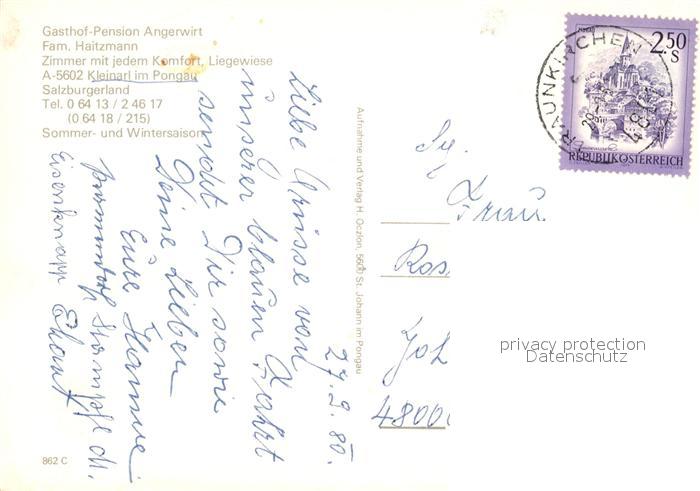 Gasthof-Pension Angerwirt
Fam. Haitzmann
Zimmer mit jedem Komfort, Liegewiese
A-5602 Kleinarl im Pongau
Salzburgerland
Tel. 0 64 13 / 2 46 17
(0 64 18 / 215)
Sommer- und Wintersaison
27.9.80.
Liebe Grüsse von
unserer blauen Fahrt
sendet Dir sowie
Deine Lieben
Eure Hanne
Stampfl
862 C
Aufnahme und Verlag H. Oczlon, 5600 St. Johann im Pongau
2.50
S
REPUBLIK ÖSTERREICH
RAUNKIRCHEN
Frau
Ros
Joh
4800
privacy protection
Datenschutz